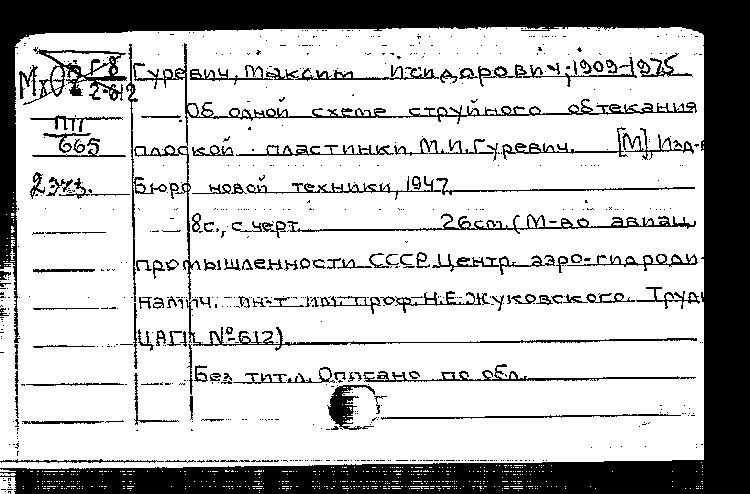 Г-8
2-612
Гуревич, Максим Исидорович; 1909-1975
Об одной схеме струйного обтекания
ПТГ
665
плоской пластинки. М.И.Гуревич. [М] Изд-
2 экз.
Бюро новой техники, 1947.
8с., с черт. 26см. (М-во авиац.
промышленности СССР. Центр. аэро-гидроди-
намич. ин-т им. проф. Н.Е.Жуковского. Труды
ЦАГИ. № 612)
Без тит.л. Описано по обл.